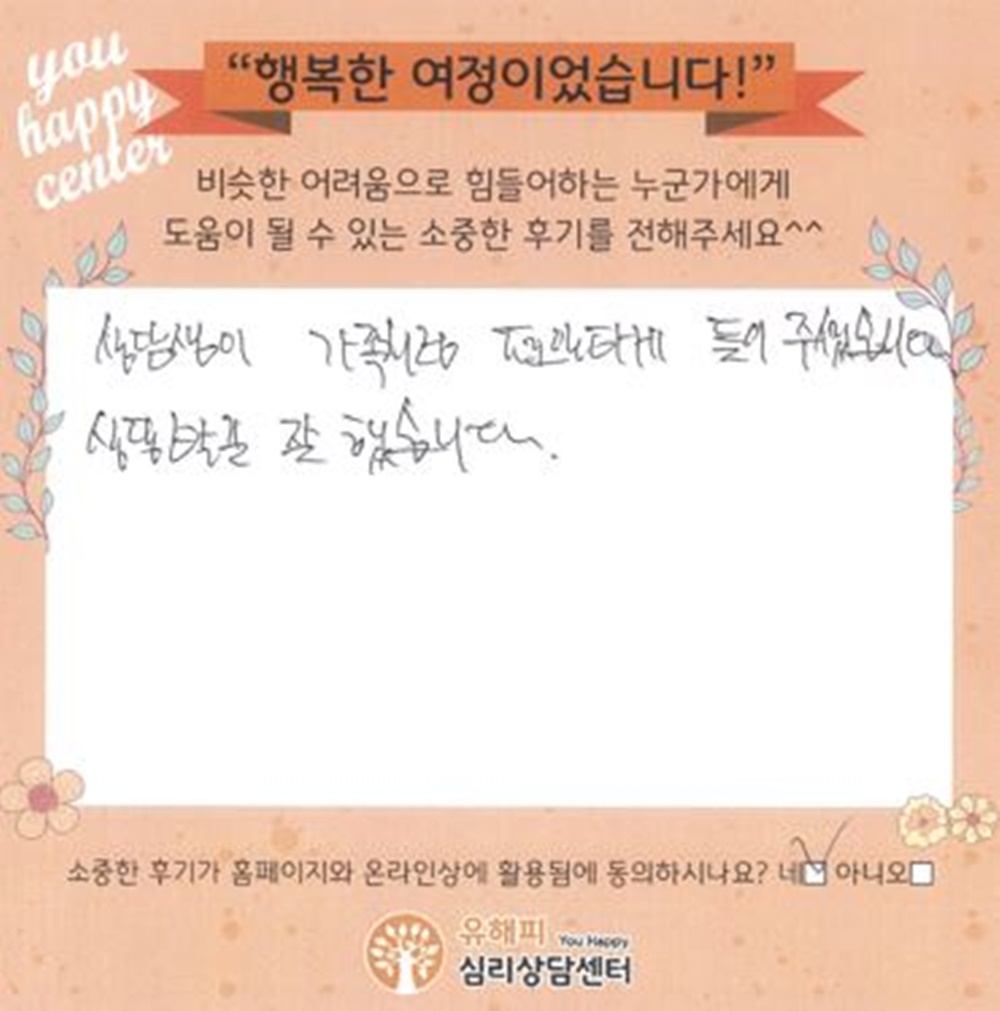 you
happy
center
“행복한 여정이었습니다!”
비슷한 어려움으로 힘들어하는 누군가에게
도움이 될 수 있는 소중한 후기를 전해주세요^^
가족처럼 편안하게 들어 주셨습니다
잘 했습니다.
소중한 후기가 홈페이지와 온라인상에 활용됨에 동의하시나요? 네 아니오
유해피 You Happy
심리상담센터